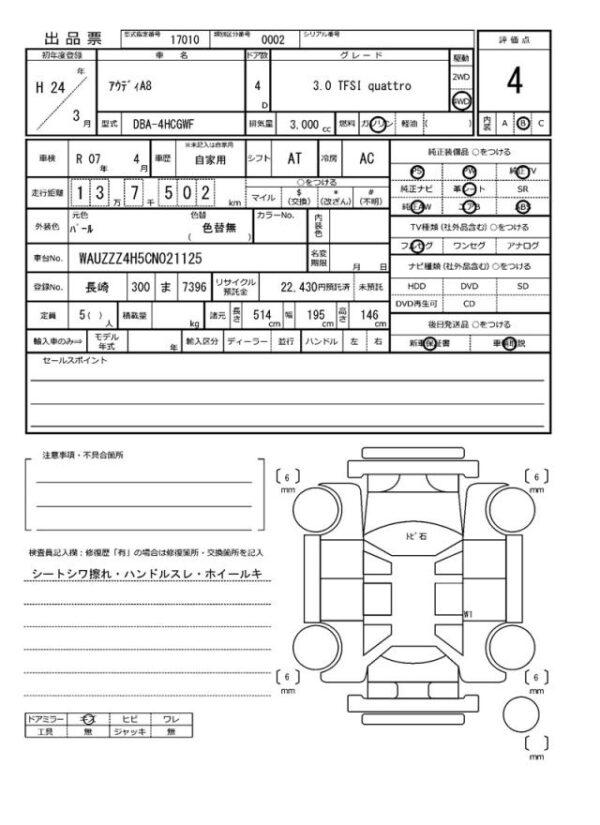 出品票 型式指定番号 17010 類別区分番号 0002 シリアル番号
評価点
4
初年度登録 車名 ドア数 グレード 駆動
H 24 年 3 月 アウディA8 4 D 3.0 TFSI quattro 2WD 4WD
型式 DBA-4HCGWF 排気量 3,000 cc 燃料 ガソリン 軽油 ( ) 内装 A B C
車検 R 07 年 4 月 車歴 ※未記入は自家用 自家用 シフト AT 冷房 AC
走行距離 1 3 万 7 千 5 0 2 km ○をつける マイル $ (交換) * (改ざん) # (不明)
外装色 元色 パール 色替 ( 色替無 ) カラーNo. 内装色
車台No. WAUZZZ4H5CN021125 名変期限 月 日
登録No. 長崎 300 ま 7396 リサイクル預託金 22,430円預託済 未預託
定員 5( ) 人 積載量 kg 諸元 長さ 514 cm 幅 195 cm 高さ 146 cm
輸入車のみ⇒ モデル年式 年 輸入区分 ディーラー 並行 ハンドル 左 右
純正装備品 ○をつける
PS PW 純正TV
純正ナビ 革シート SR
純正AW エアB ABS
TV種類(社外品含む)○をつける
フルセグ ワンセグ アナログ
ナビ種類(社外品含む)○をつける
HDD DVD SD
DVD再生可 CD
後日発送品 ○をつける
新車保証書 車輌取説
セールスポイント
注意事項・不具合箇所
検査員記入欄:修復歴「有」の場合は修復箇所・交換箇所を記入
シートシワ擦れ・ハンドルスレ・ホイールキ
ドアミラー キズ ヒビ ワレ
工具 無 ジャッキ 無
( 6 ) mm
( 6 ) mm
トビ石
W1
( 6 ) mm
( 6 ) mm
( ) mm